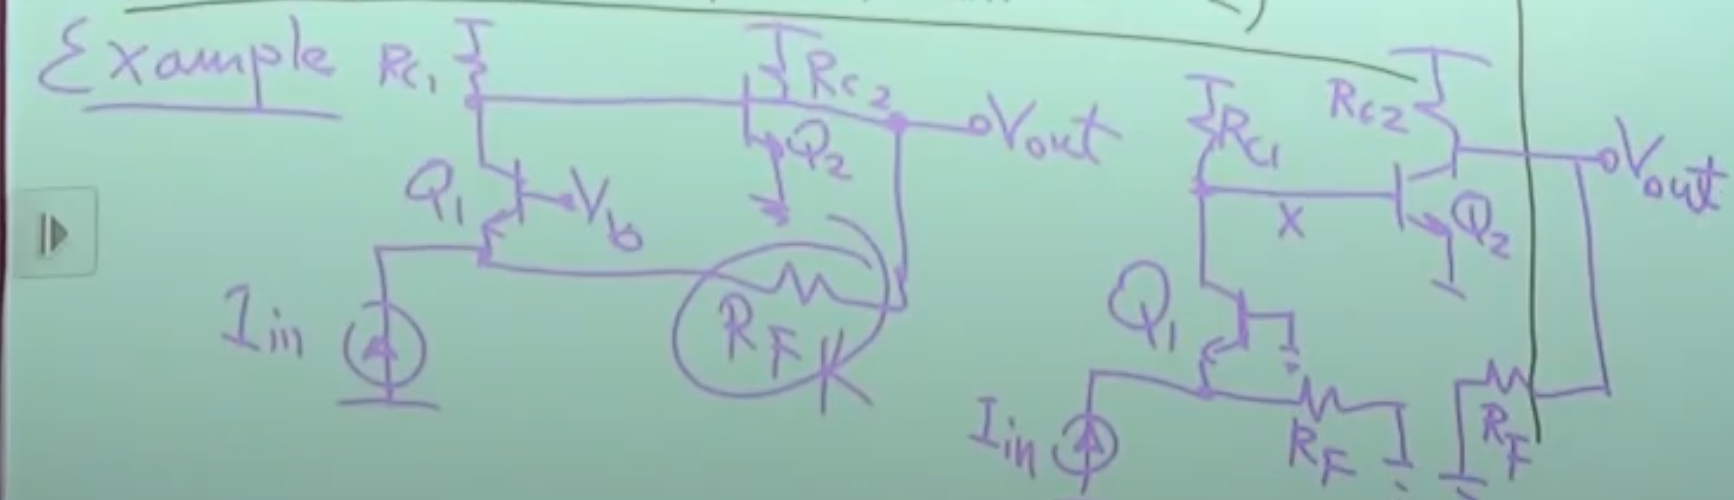 Example
RC1
RC2
Vout
Q2
Q1
Vb
Iin
RF
K
RC1
RC2
Vout
X
Q2
Q1
Iin
RF
RF